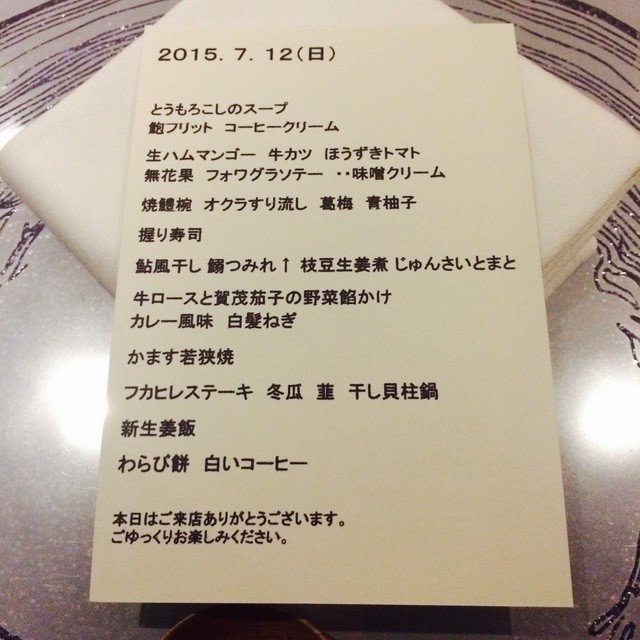 2015. 7. 12(日)
とうもろこしのスープ
鮑フリット コーヒークリーム
生ハムマンゴー 牛カツ ほうずきトマト
無花果 フォワグラソテー ・・味噌クリーム
焼鱧椀 オクラすり流し 葛梅 青柚子
握り寿司
鮎風干し 鰯つみれ↑ 枝豆生姜煮 じゅんさいとまと
牛ロースと賀茂茄子の野菜餡かけ
カレー風味 白髪ねぎ
かます若狭焼
フカヒレステーキ 冬瓜 韮 干し貝柱鍋
新生姜飯
わらび餅 白いコーヒー
本日はご来店ありがとうございます。
ごゆっくりお楽しみください。